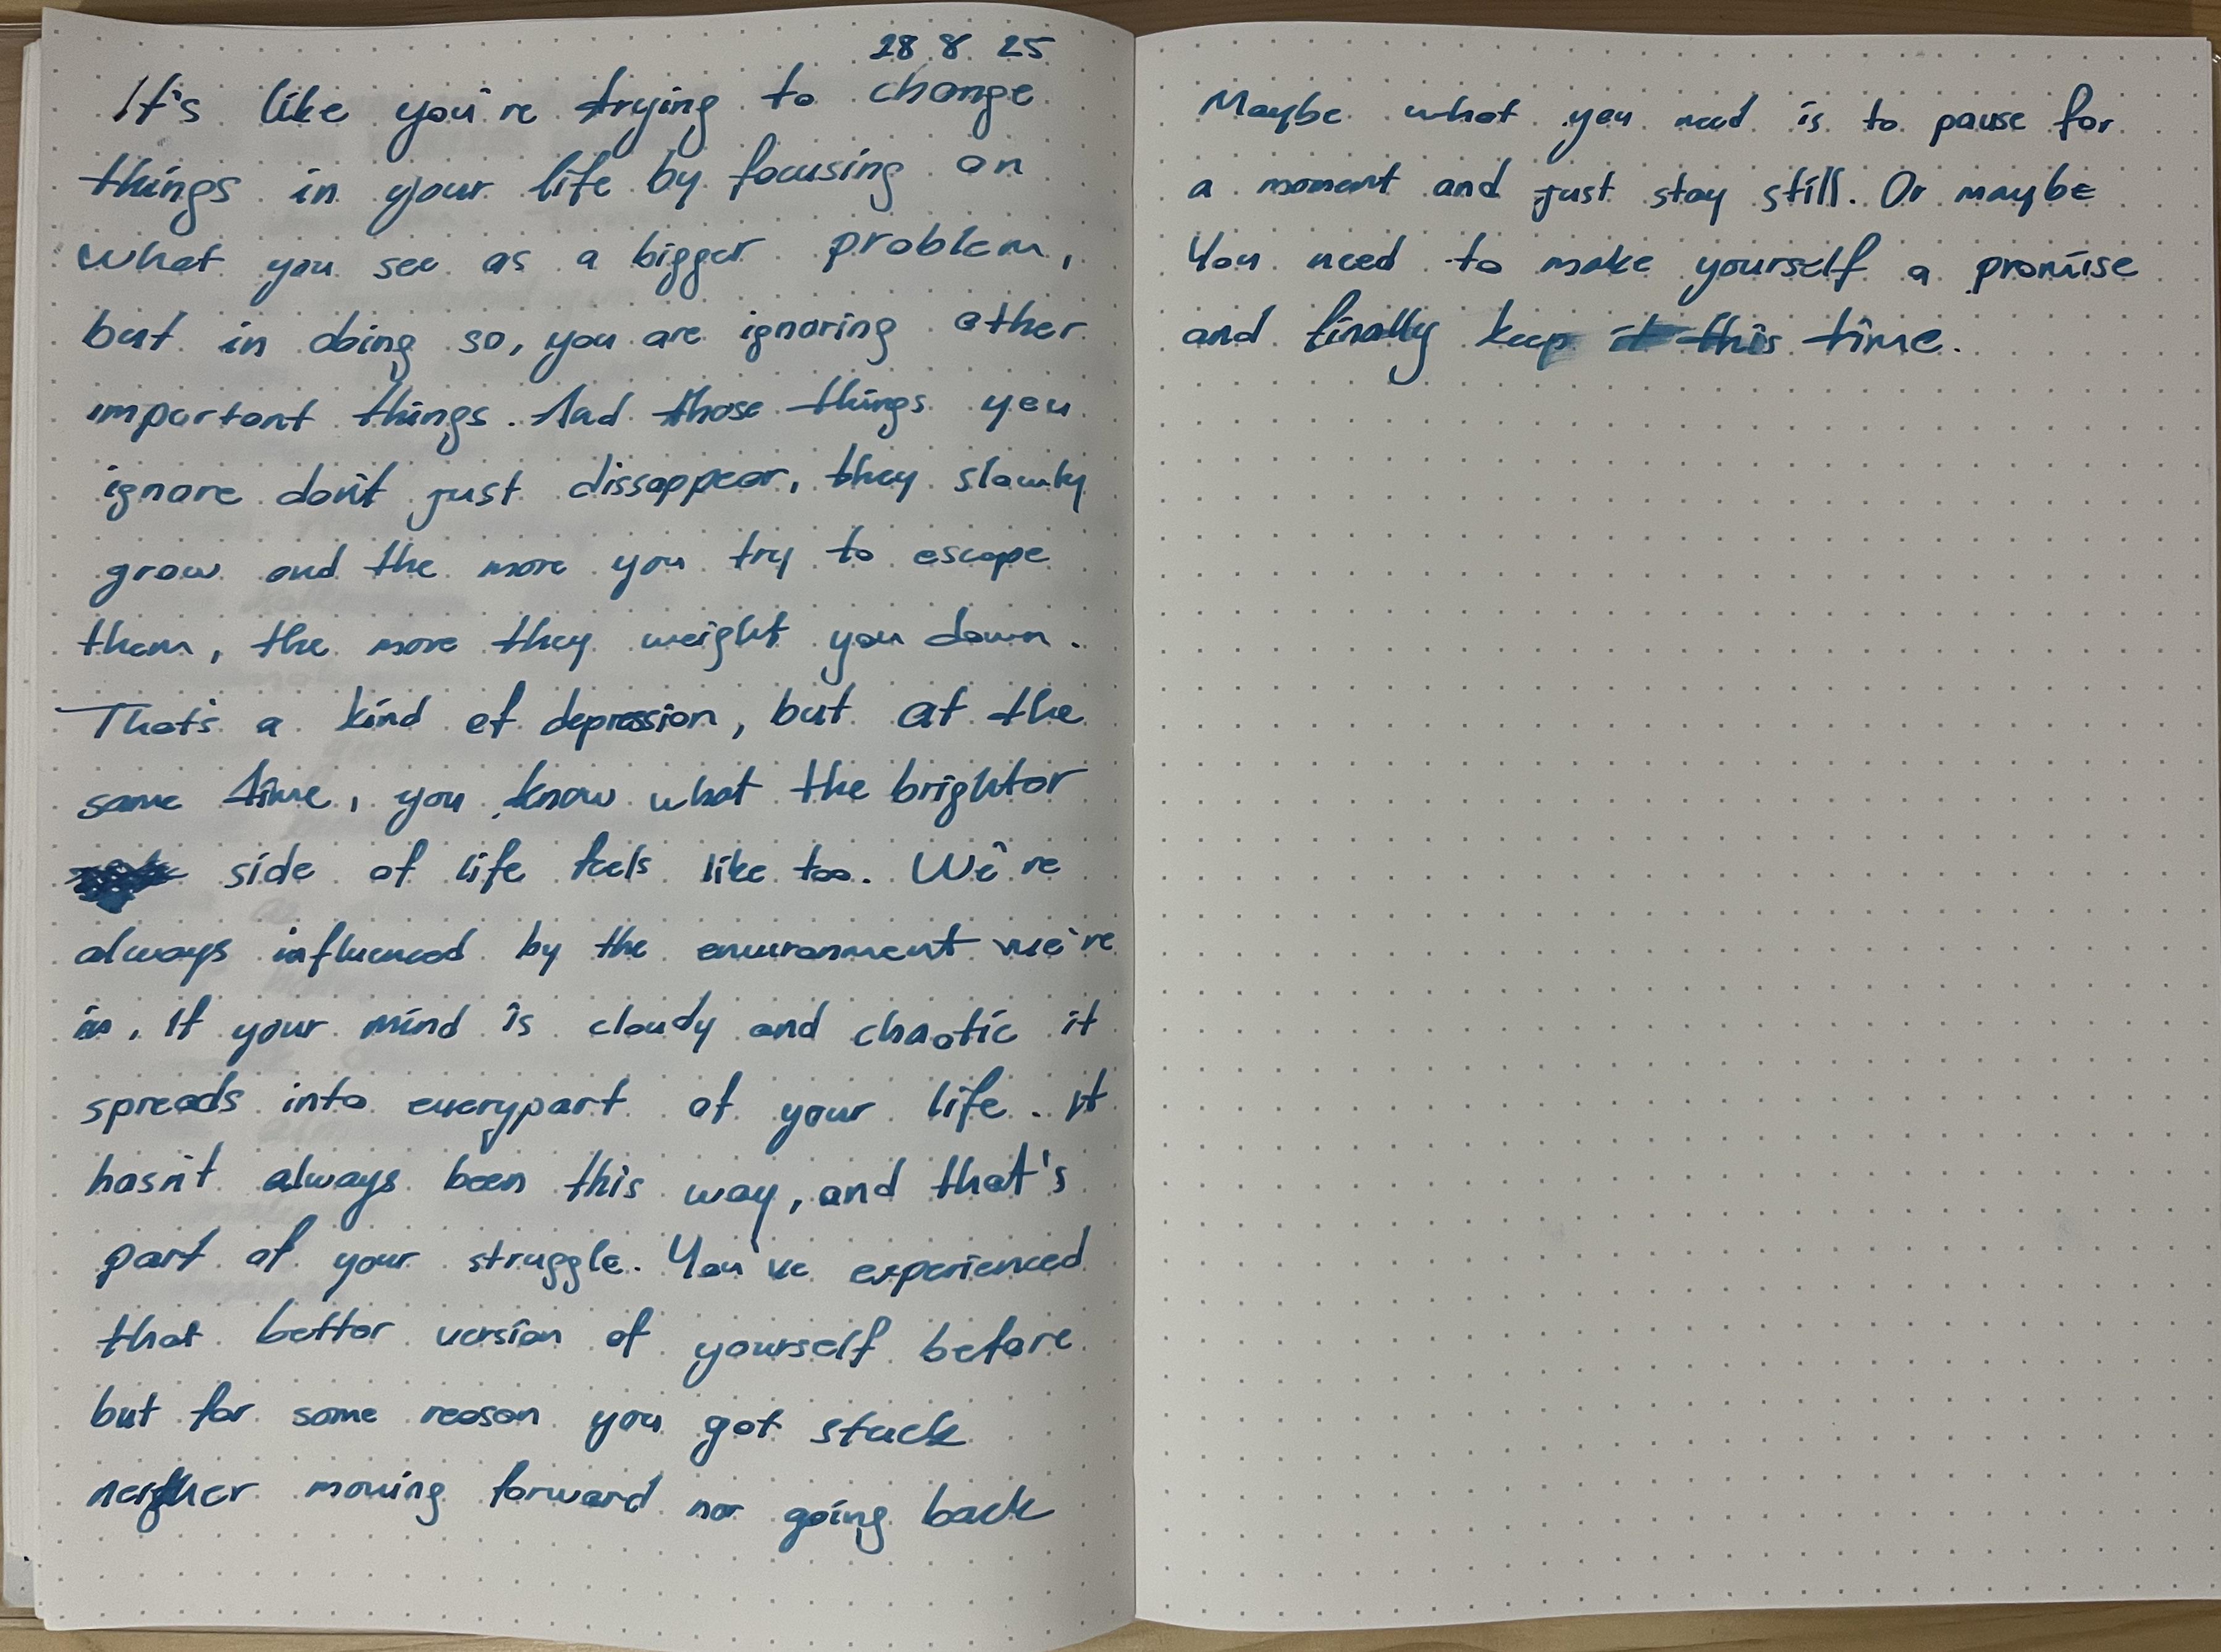 28 8 25
It's like you're trying to change
things in your life by focusing on
what you see as a bigger problem,
but in doing so, you are ignoring other
important things. And those things you
ignore don't just dissappear, they slowly
grow and the more you try to escape
them, the more they weight you down.
That's a kind of depression, but at the
same time, you know what the brighter
side of life feels like too. We're
always influenced by the environment we're
in, If your mind is cloudy and chaotic it
spreads into everypart of your life. It
hasn't always been this way, and that's
part of your struggle. You've experienced
that better version of yourself before
but for some reason you got stuck
neither moving forward nor going back
Maybe what you need is to pause for
a moment and just stay still. Or maybe
You need to make yourself a promise
and finally keep it this time.